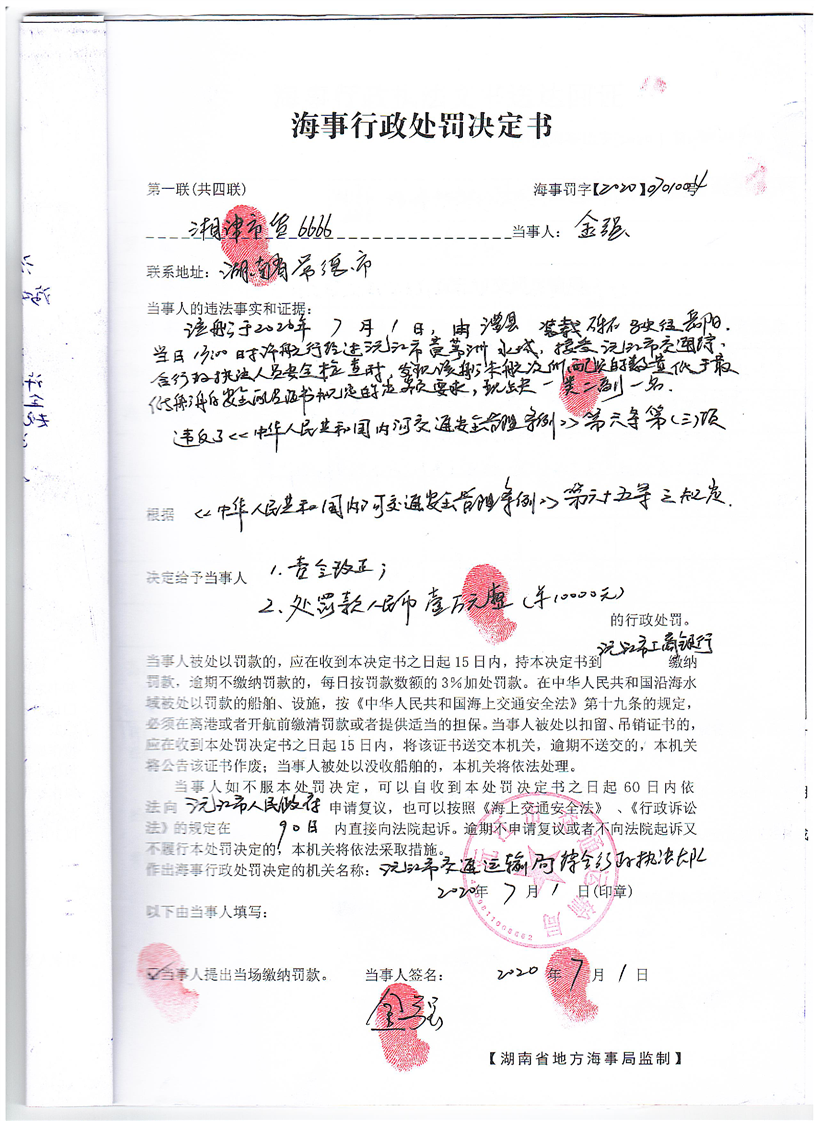 海事行政处罚决定书
第一联(共四联) 海事罚字【2020】070100号
湘津市货6666 当事人: 金强
联系地址: 湖南省常德市
当事人的违法事实和证据:
该船于2020年7月1日,由澧县装载砾石驶往岳阳.
当日 时许航行经过沅江市黄茅洲水域,接受沅江市交通综
合行政执法人员安全检查时,发现该船未航次所配员的数量低于最
低船舶安全配员证书规定的定员要求,现出缺一类二副一名.
违反了<<中华人民共和国内河交通安全管理条例>>第六条第(三)项
根据 <<中华人民共和国内河交通安全管理条例>>第六十五条之规定.
决定给予当事人 1.责令改正;
2.处罚款人民币壹万元整(¥10000元)
的行政处罚。
沅江市工商银行
当事人被处以罚款的,应在收到本决定书之日起15日内,持本决定书到 缴纳
罚款,逾期不缴纳罚款的,每日按罚款数额的3%加处罚款。在中华人民共和国沿海水
域被处以罚款的船舶、设施,按《中华人民共和国海上交通安全法》第十九条的规定,
必须在离港或者开航前缴清罚款或者提供适当的担保。当事人被处以扣留、吊销证书的,
应在收到本处罚决定书之日起15日内,将该证书送交本机关,逾期不送交的,本机关
将公告该证书作废;当事人被处以没收船舶的,本机关将依法处理。
当事人如不服本处罚决定,可以自收到本处罚决定书之日起60日内依
法向 沅江市人民政府 申请复议,也可以按照《海上交通安全法》、《行政诉讼
法》的规定在 90日 内直接向法院起诉。逾期不申请复议或者不向法院起诉又
不履行本处罚决定的,本机关将依法采取措施。
作出海事行政处罚决定的机关名称: 沅江市交通运输局综合行政执法大队
2020年7月1日(印章)
以下由当事人填写:
☑当事人提出当场缴纳罚款。 当事人签名: 2020年7月1日
金强
【湖南省地方海事局监制】